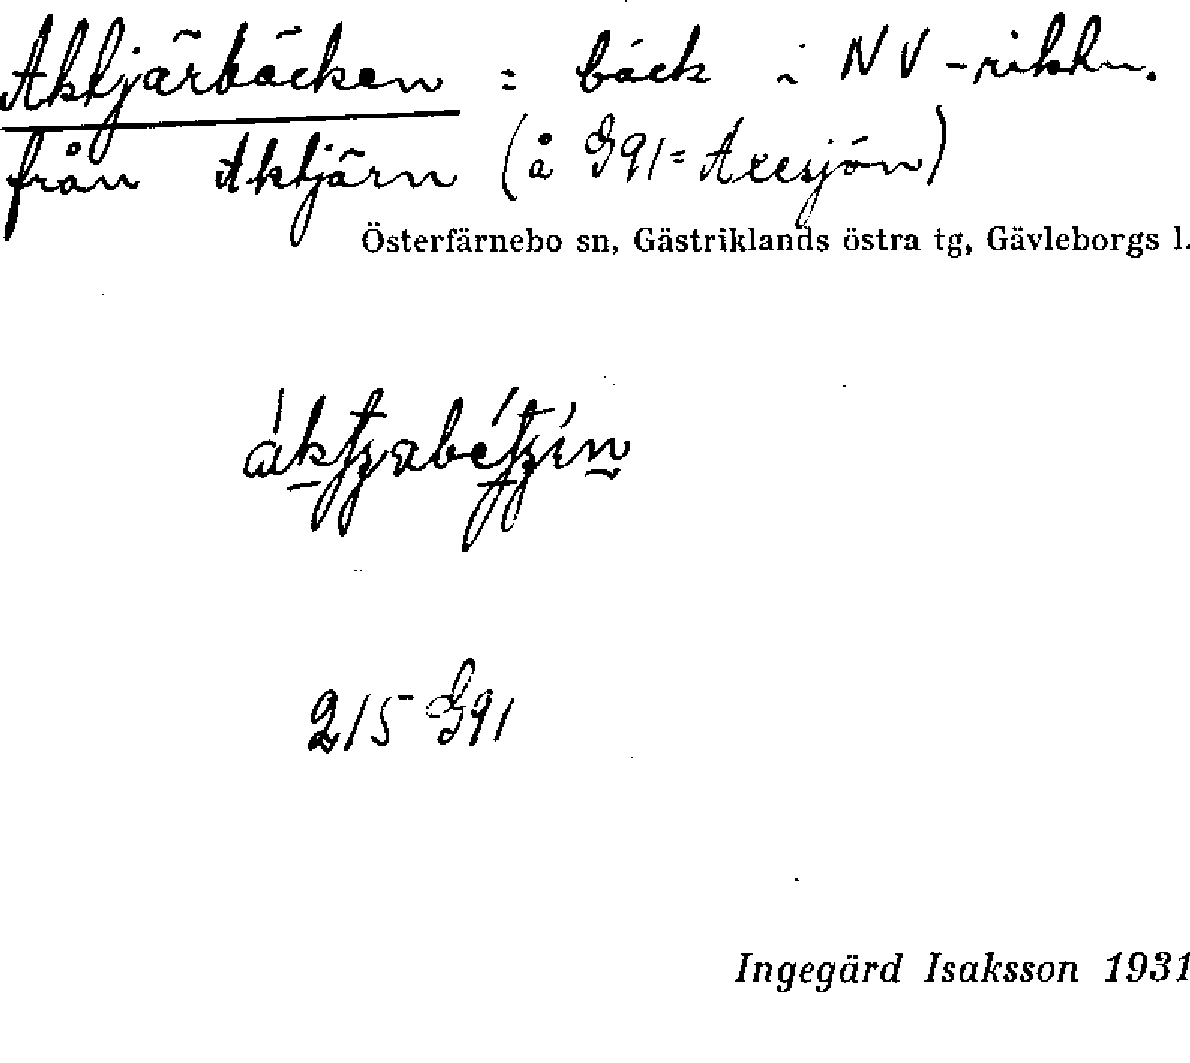 Aktjärbäcken = bäck i NV-riktn.
från Aktjärn (å G91= Axesjön)
Österfärnebo sn, Gästriklands östra tg, Gävleborgs l.
215 G91
Ingegärd Isaksson 1931